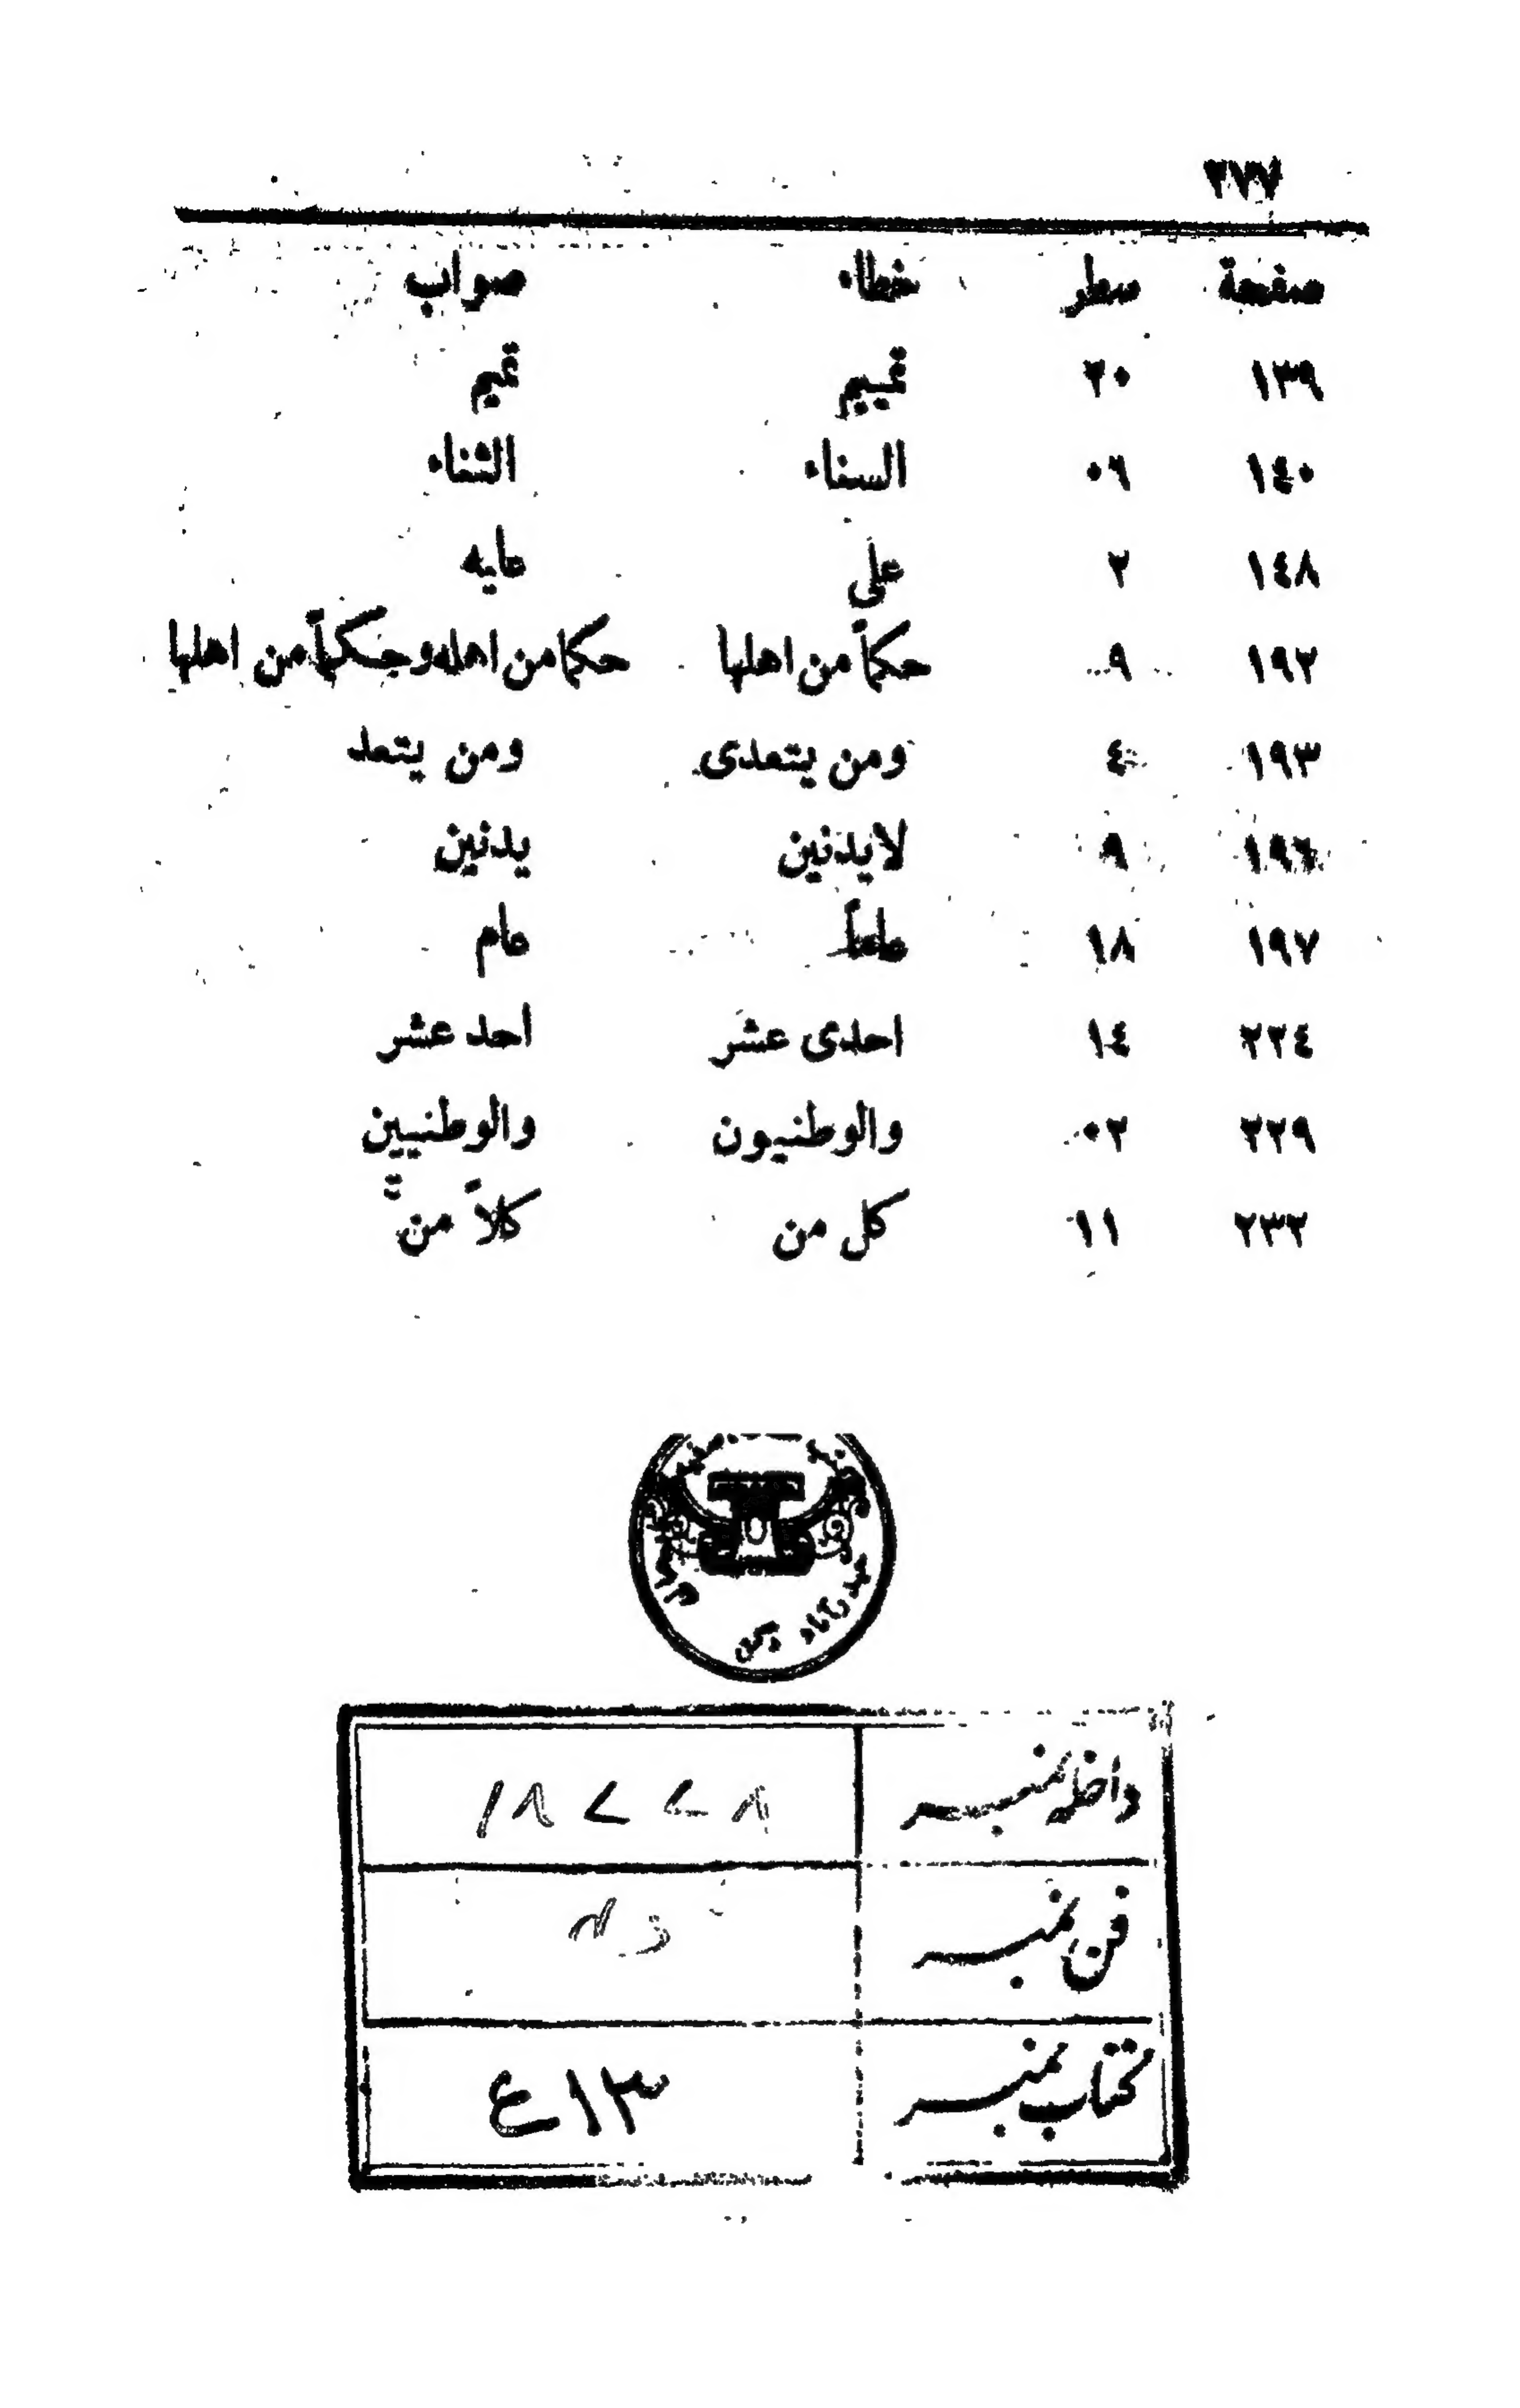 ٢٧٧
صفحة سطر خطاء صواب
١٣٩ ٢٠ تمييم تميم
١٤٠ ٠٦ السناء الثناء
١٤٨ ٢ على عليه
١٩٢ ٩ حكماً من اهلها حكما من اهله وحكماً من اهلها
١٩٣ ٤ ومن يتعدى ومن يتعد
١٩٦ ٩ لايدنين يدنين
١٩٧ ١٨ عاماً عام
٢٢٤ ١٤ احدى عشر احد عشر
٢٢٩ ٠٢ والوطنيون والوطنيين
٢٣٢ ١١ كل من كلاً من
حیدرآباد دکن
داخلہ نمبر ١٨٧٧٨
فن نمبر
کتاب نمبر ٣١٤